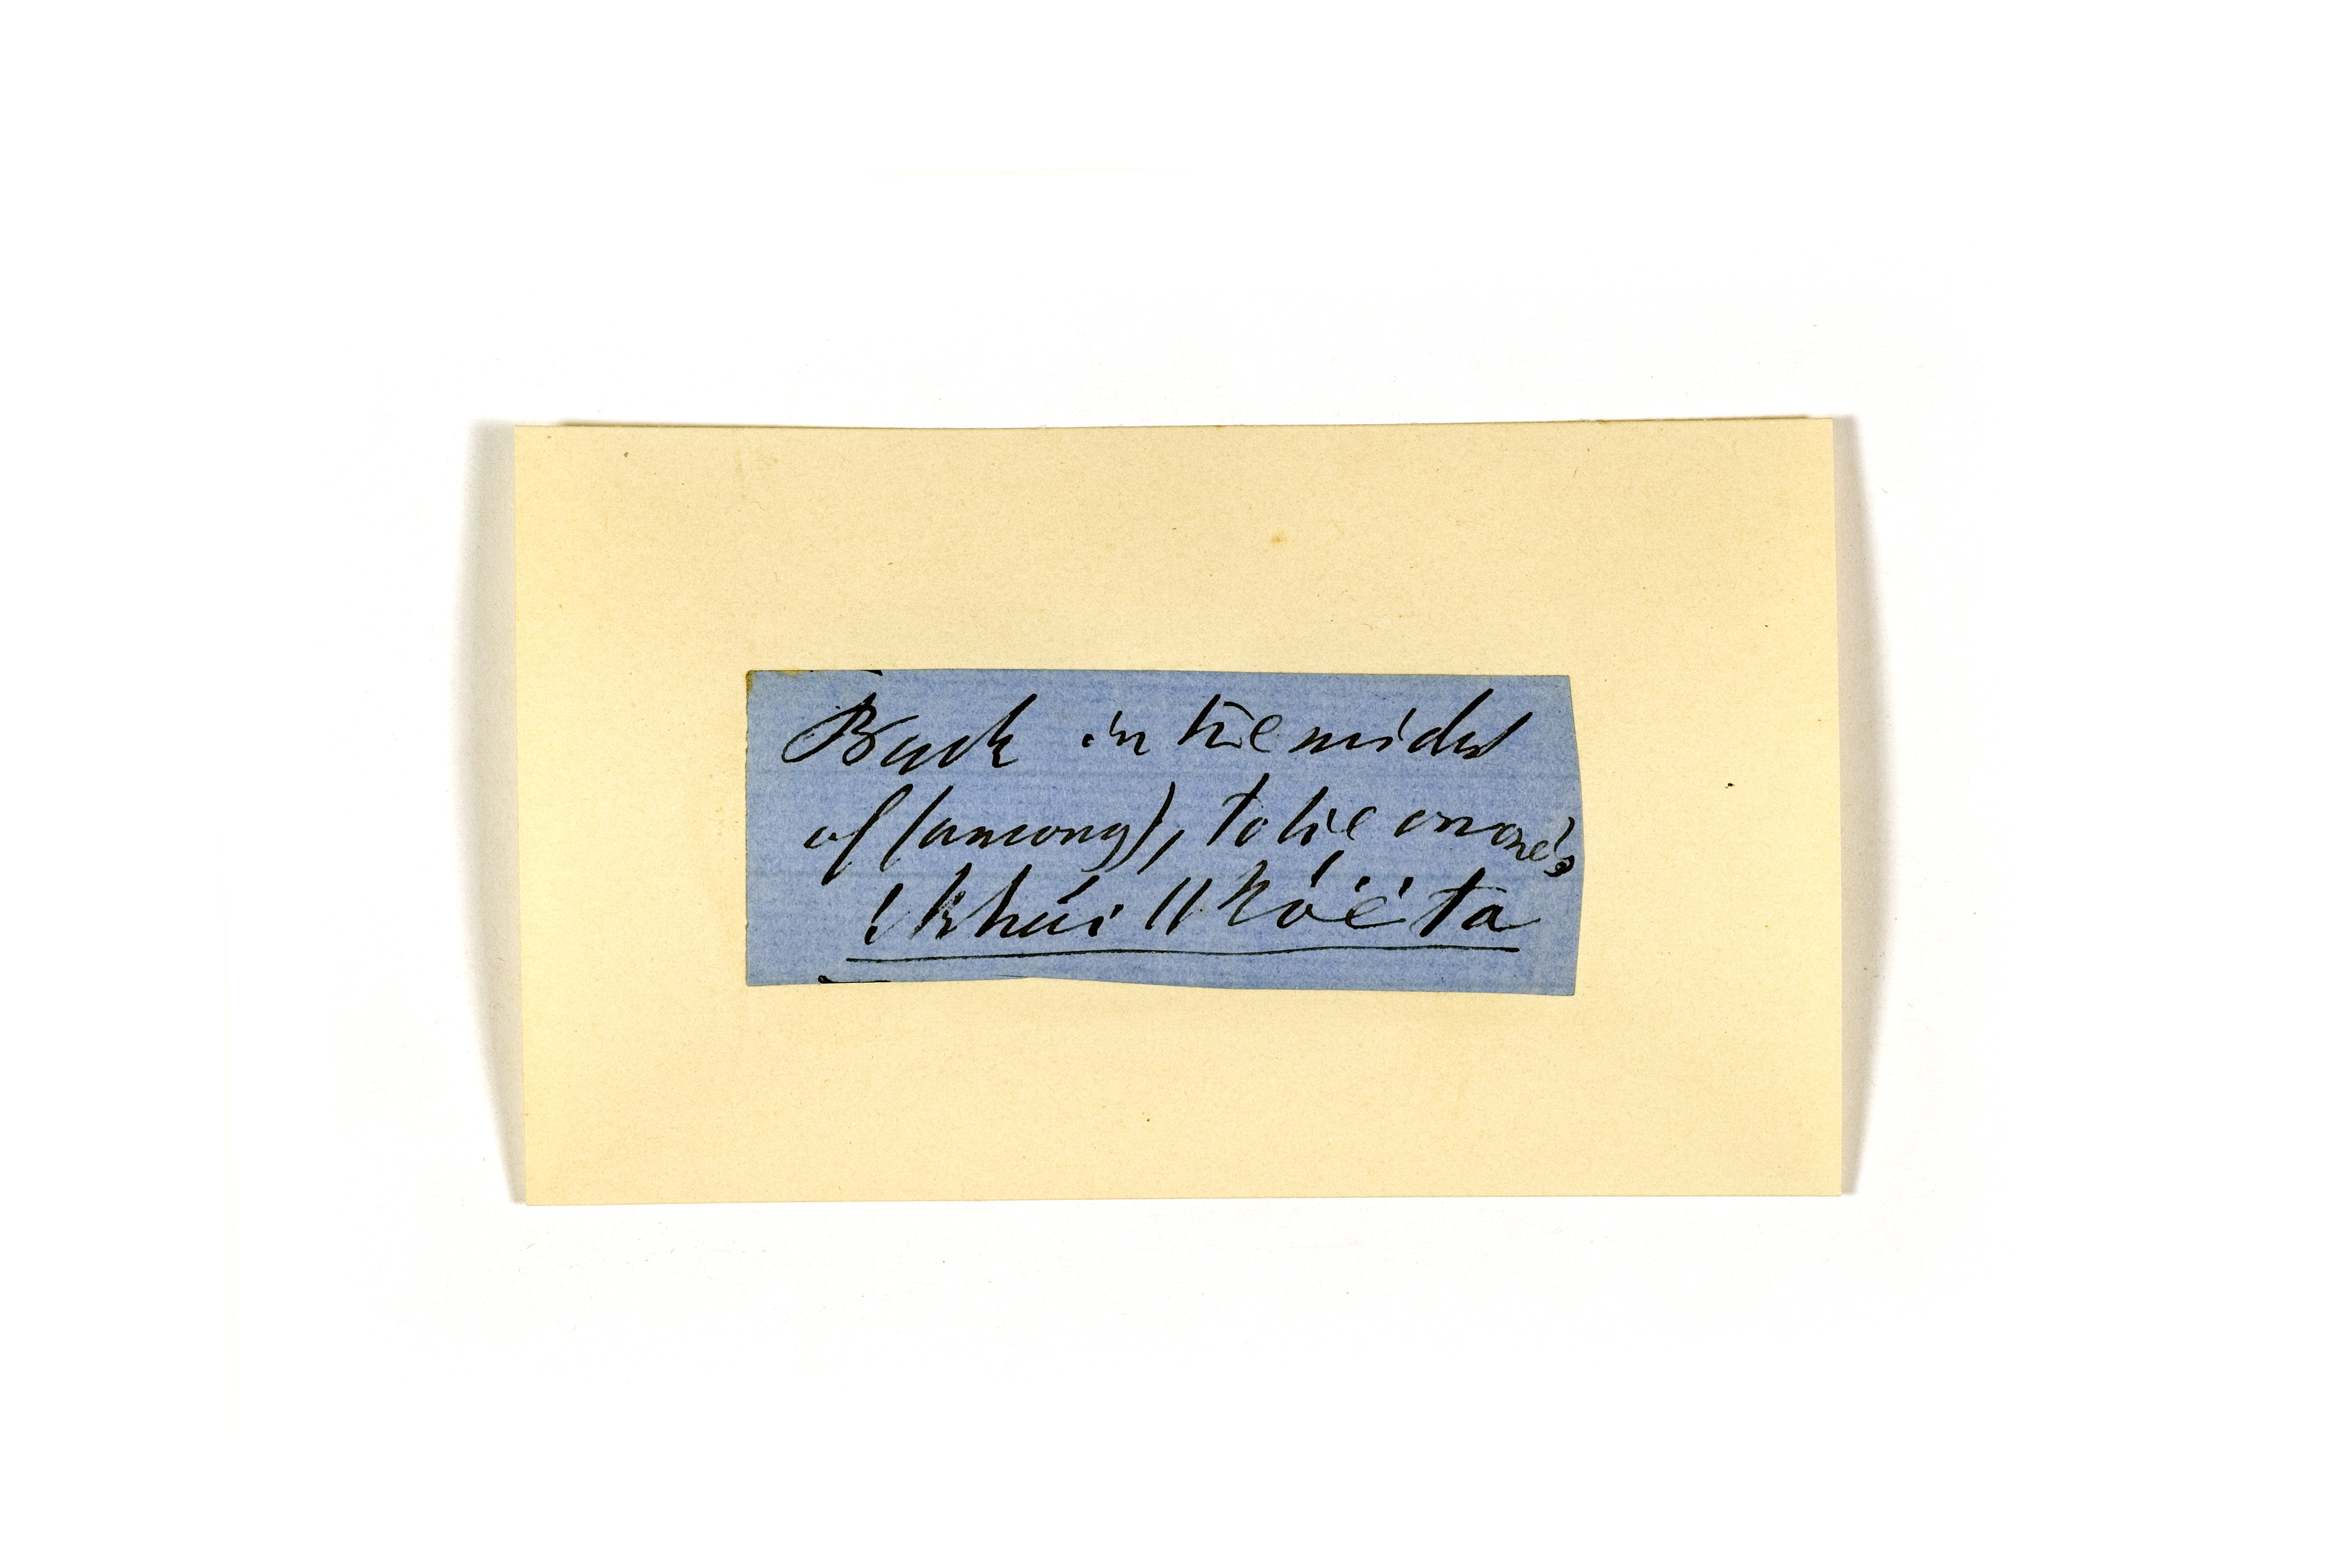 Back in the midst
of (among), to lie on one's
!khúi ǁkóë ta